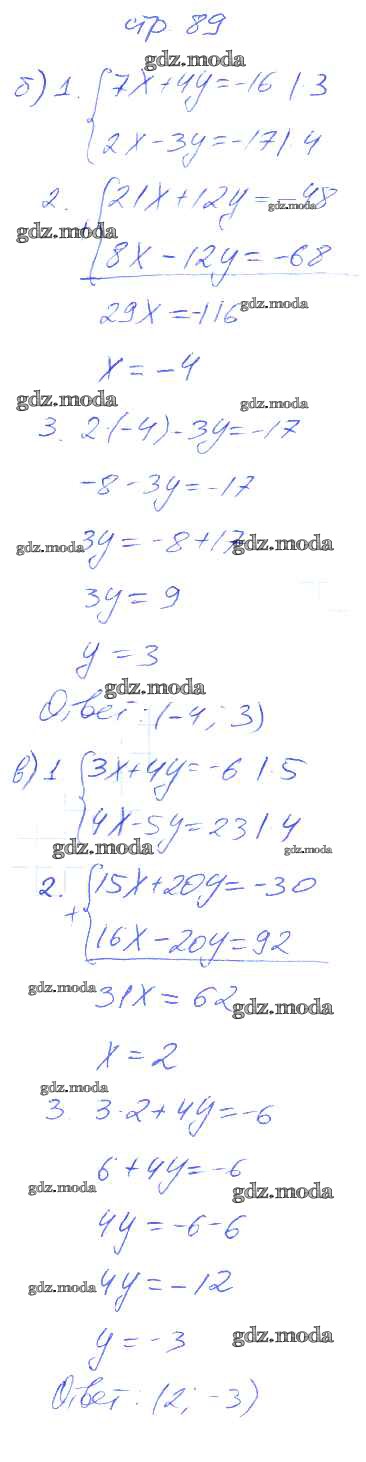 стр. 89
gdz.moda
б) 1. { 7x + 4y = -16 | · 3
2x - 3y = -17 | · 4
2. { 21x + 12y = -48
gdz.moda
gdz.moda +
8x - 12y = -68
29x = -116 gdz.moda
x = -4
gdz.moda gdz.moda
3. 2 · (-4) - 3y = -17
-8 - 3y = -17
gdz.moda 3y = -8 + 17 gdz.moda
3y = 9
y = 3
gdz.moda
Ответ: (-4; 3)
в) 1 { 3x + 4y = -6 | · 5
4x - 5y = 23 | · 4
gdz.moda gdz.moda
2. + { 15x + 20y = -30
16x - 20y = 92
gdz.moda 31x = 62 gdz.moda
x = 2
gdz.moda
3. 3 · 2 + 4y = -6
6 + 4y = -6
gdz.moda gdz.moda
4y = -6 - 6
gdz.moda 4y = -12
y = -3 gdz.moda
Ответ: (2; -3)